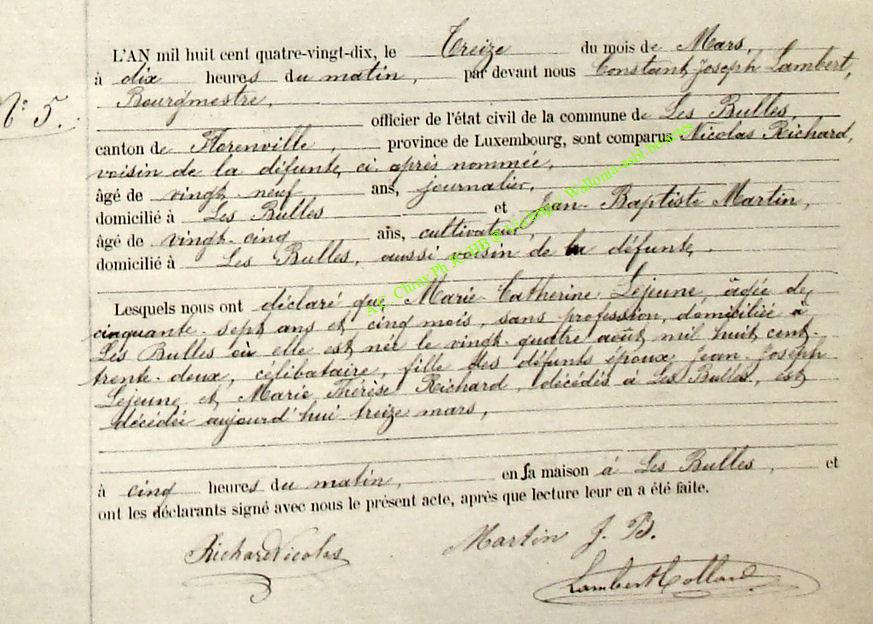 L'AN mil huit cent quatre-vingt-dix, le Treize du mois de Mars,
à dix heures du matin, par devant nous Constant Joseph Lambert,
Bourgmestre,
N° 5.
officier de l'état civil de la commune de Les Bulles,
canton de Florenville, province de Luxembourg, sont comparus Nicolas Richard,
voisin de la défunte ci après nommée,
âgé de vingt-neuf ans, journalier,
domicilié à Les Bulles et Jean-Baptiste Martin,
âgé de vingt-cinq ans, cultivateur,
domicilié à Les Bulles, aussi voisin de la défunte.
Lesquels nous ont déclaré que Marie-Catherine Lejeune, âgée de
cinquante-sept ans et cinq mois, sans profession, domiciliée à
Les Bulles où elle est née le vingt-quatre août mil huit cent-
trente-deux, célibataire, fille des défunts époux Jean-Joseph
Lejeune et Marie Thérèse Richard, décédés à Les Bulles, est
décédée aujourd'hui treize mars,
à cinq heures du matin, en sa maison à Les Bulles, et
ont les déclarants signé avec nous le présent acte, après que lecture leur en a été faite.
Richard Nicolas Martin J. B.
Lambert Collard